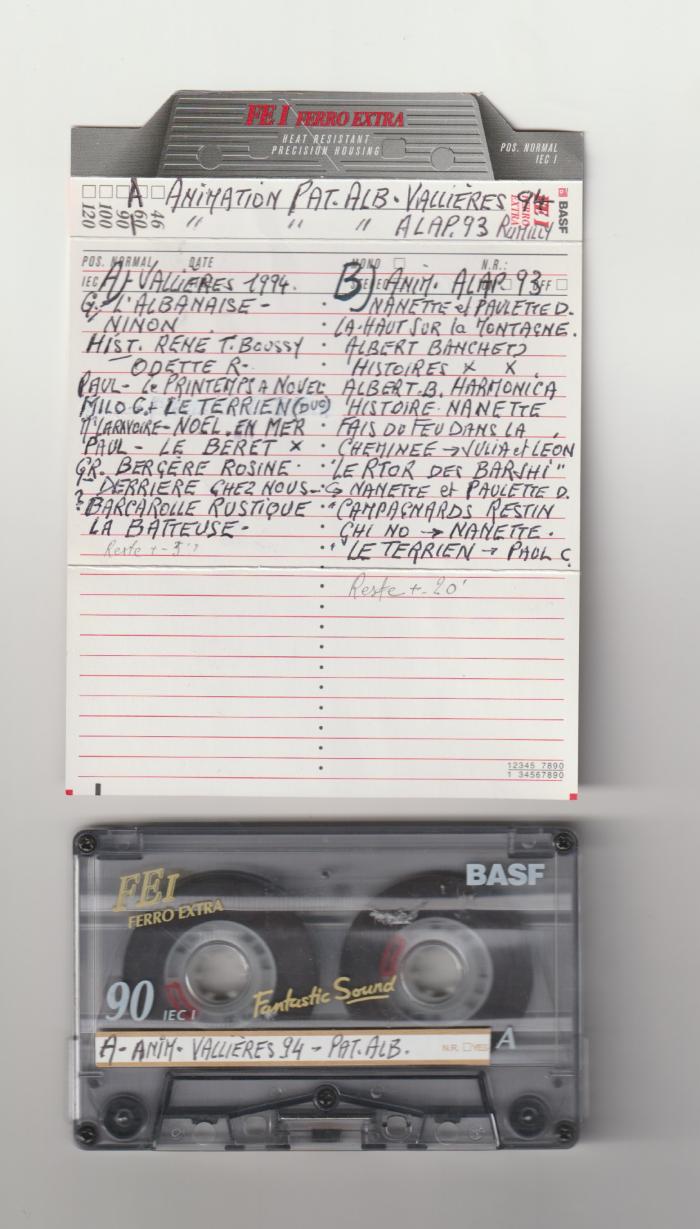 FE I FERRO EXTRA
HEAT RESISTANT
PRECISION HOUSING
POS. NORMAL
IEC I
46
60
90
100
120
A ANIMATION PAT. ALB. VALLIÈRES 94
" " " ALAP. 93 RUMILLY
FE I
FERRO
EXTRA
BASF
POS. NORMAL DATE
IEC
MONO N.R.:
OFF
A) VALLIÈRES 1994.
G. L'ALBANAISE -
NINON
HIST. RENÉ T. BOUSSY
ODETTE R-
PAUL - Le PRINTEMPS A NOVEL
MILO G.+ LE TERRIEN (DUO)
NOËL EN MER
PAUL - LE BERET X
GR. BERGÈRE ROSINE
? DERRIERE CHEZ NOUS -
? BARCAROLLE RUSTIQUE
LA BATTEUSE -
Reste +- 3'
B) ANIM. ALAP. 93
NANETTE et PAULETTE D.
LA-HAUT SUR la MONTAGNE.
ALBERT BANCHET
HISTOIRES X X
ALBERT. B. HARMONICA
HISTOIRE NANETTE
FAIS DU FEU DANS LA
CHEMINEE → JULIA et LEON
"LE RTOR DES BARSHI"
NANETTE et PAULETTE D.
" CAMPAGNARDS RESTIN
CHI NO → NANETTE.
" LE TERRIEN → PAUL C.
Reste +- 20'
12345 7890
1 34567890
FE I
FERRO EXTRA
BASF
90 IEC I
Fantastic Sound
A - ANIM. VALLIÈRES 94 - PAT. ALB.
N.R. YES
A